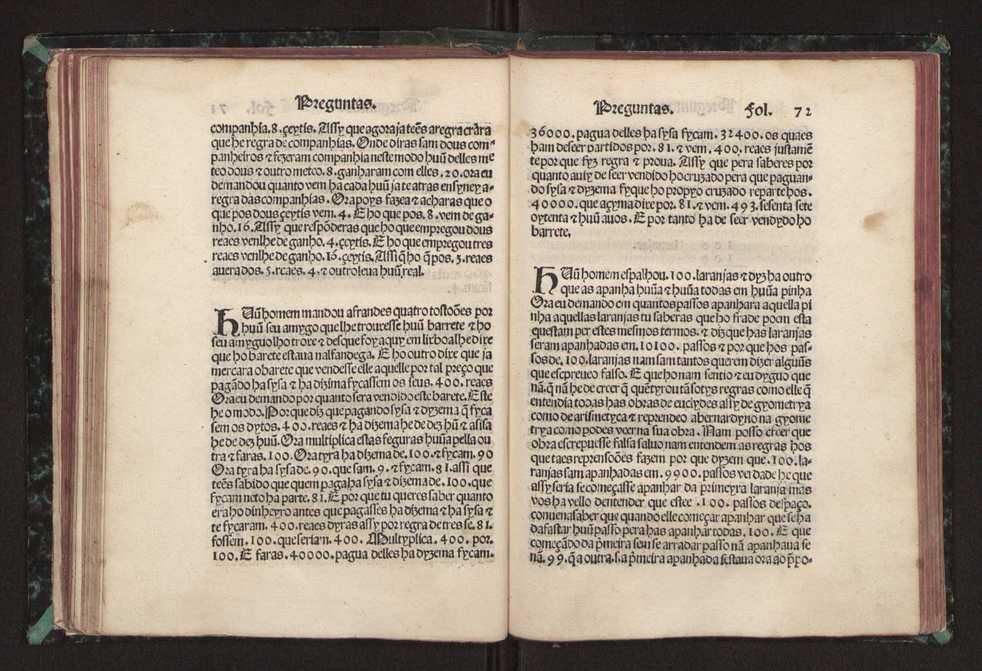 Preguntas.
companhia.8.çeytis. Assy que agora ja tẽs a regra crara
que he regra de companhias. Onde diras sam dous com-
panheiros & fezeram companhia neste modo huũ delles me
teo dous & outro meteo.8.ganharam com elles.20.ora eu
demandou quanto vem ha cada huũ ja te atras ensyney a-
regra das companhias. Ora poys fazea & acharas que o
que pos dous çeytis vem.4.E ho que pos.8.vem de ga-
nho.16.Assy que respõderas que ho que empregou dous
reaes venlhe de ganho.4.çeytis.E ho que empregou tres
reaes venlhe de ganho.16.çeytis.Assi q̃ ho q̃ pos.5.reaes
auera dos.5.reaes.4.& outro leua huũ real.
HUũ homem mandou a frandes quatro tostoões por
huũ seu amygo que lhe trouxesse huũ barrete & ho
seu amyguo lho trixe & desque foy aquy em lixboa lhe dixe
que ho barete estaua nalfandega. E ho outro dixe que ja
mercara o barete que vendesse elle aquelle por tal preço que
pagãdo ha sysa & ha dizima fycassem os seus.400.reaes
Ora eu demando por quanto sera vendido este barete.Este
he o modo. Por que diz que pagando sysa & dyzema q̃ fyca
sem os dytos.400.reaes & ha dizema he de dez hũ & a sisa
he de dez huũ. Ora multiplica estas feguras huũa pella ou
tra & faras.100.Ora tyra ha dizema de.100.& fycam.90
Ora tyra ha sysa de.90.que sam.9.& fycam.81.assi que
teẽs sabido que quem paga ha sysa & dizema de.100.que
fycam neto ha parte.81.E por que tu queres saber quanto
era ho dinheyro antes que pagasses ha dizema & ha sysa &
te fycaram.400.reaes dyras assy por regra de tres se.81.
fossem.100.que seriam.400.Multyplica.400.por.
100.E faras.40000.pagua delles ha dyzema fycam.
Preguntas. Fol. 72
36000.pagua delles ha sysa fycam.32400.os quaes
ham de seer partidos por.81.& vem.400.reaes justamẽ
te por que fyz regra & proua. Assy que pera saberes por
quanto auiy de seer vendido ho cruzado pera que paguan-
do sysa & dyzema fyque ho propyo cruzado reparte hos.
40000.que açyma dixe por.81.& vem.493.sesenta sete
oytenta & huũ auos. E por tanto ha de seer vendydo ho
barrete.
HUũ homem espalhou.100.laranjas & dyz ha outro
que as apanha huũa & huũa todas em huũa pinha
Ora eu demando em quantos passos apanhara aquella pi
nha aquellas laranjas tu saberas que ho frade poem esta
questam per estes mesmos termos.& diz que has laranjas
seram apanhadas em.10100.passos & por que hos pas-
sos de.100.laranjas nam sam tantos querem dizer alguũs
que escpreueo falso. E que ho nam sentio & eu dyguo que
nã.q̃ nã he de creer q̃ quẽ tyrou tã sotys regras como elle q̃
entendia todas has obras de euclydes assy de gyometrya
como de arismetyca & reprendeo a bernardyno na gyome
trya como podes veer na sua obra. Nam posso creer que
obra escrepuesse falsa saluo nam entendem as regras hos
que taes reprensoões fazem por que dyzem que.100.la-
ranjas sam apanhadas em.9900.passos verdade he que
assy seria se começasse apanhar da primeyra laranja mas
vos ha vello dentender que estee.100.passos despaço.
conuem a saber que quando elle começar apanhar que se ha
dafastar huũ passo pera has apanhar todas.100.E que
começãdo da p̃meira sem se arradar passo nã apanhaua se
nã.99.q̃ a outra.s.a p̃meira apanhada se staua ora ao p̃po-